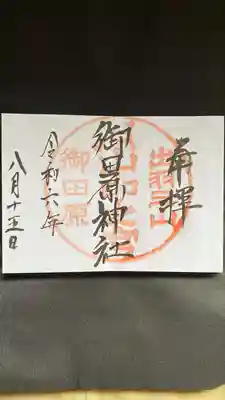 奉拝
御田原神社
令和六年
八月十五日
出羽三山
御田原